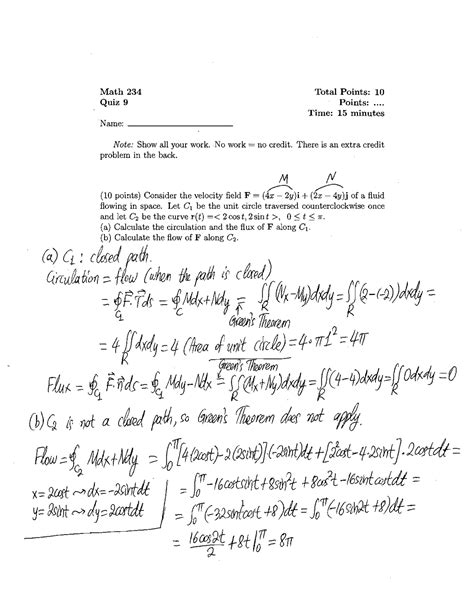 Math 234 Total Points: 10
Quiz 9 Points: ....
Time: 15 minutes
Name:
Note: Show all your work. No work = no credit. There is an extra credit
problem in the back.
M N
(10 points) Consider the velocity field F = (4x − 2y)i + (2x − 4y)j of a fluid
flowing in space. Let C₁ be the unit circle traversed counterclockwise once
and let C₂ be the curve r(t) =< 2 cos t, 2 sin t >, 0 ≤ t ≤ π.
(a) Calculate the circulation and the flux of F along C₁.
(b) Calculate the flow of F along C₂.
(a) C₁ : closed path.
Circulation = flow (when the path is closed)
= ∮_C₁ F·T ds = ∮_C Mdx+Ndy = ∬_R (Nx−My)dxdy = ∬_R (2−(−2))dxdy =
Green's Theorem
= 4∬_R dxdy = 4 (Area of unit circle) = 4·π1² = 4π
Green's Theorem
Flux = ∮_C₁ F·n ds = ∮_C₁ Mdy−Ndx = ∬_R (Mx+Ny)dxdy = ∬_R (4−4)dxdy = ∬_R 0dxdy = 0
(b) C₂ is not a closed path, so Green's Theorem does not apply.
Flow = ∮_C₂ Mdx+Ndy = ∫₀^π [4(2cost)−2(2sint)](−2sint)dt + [2·2cost−4·2sint]·2costdt =
x=2cost ⇝ dx=−2sintdt
= ∫₀^π −16costsint+8sin²t+8cos²t−16sintcostdt =
y=2sint ⇝ dy=2costdt
= ∫₀^π (−32sintcost+8)dt = ∫₀^π (−16sin2t+8)dt =
= 16cos2t/2 + 8t|₀^π = 8π